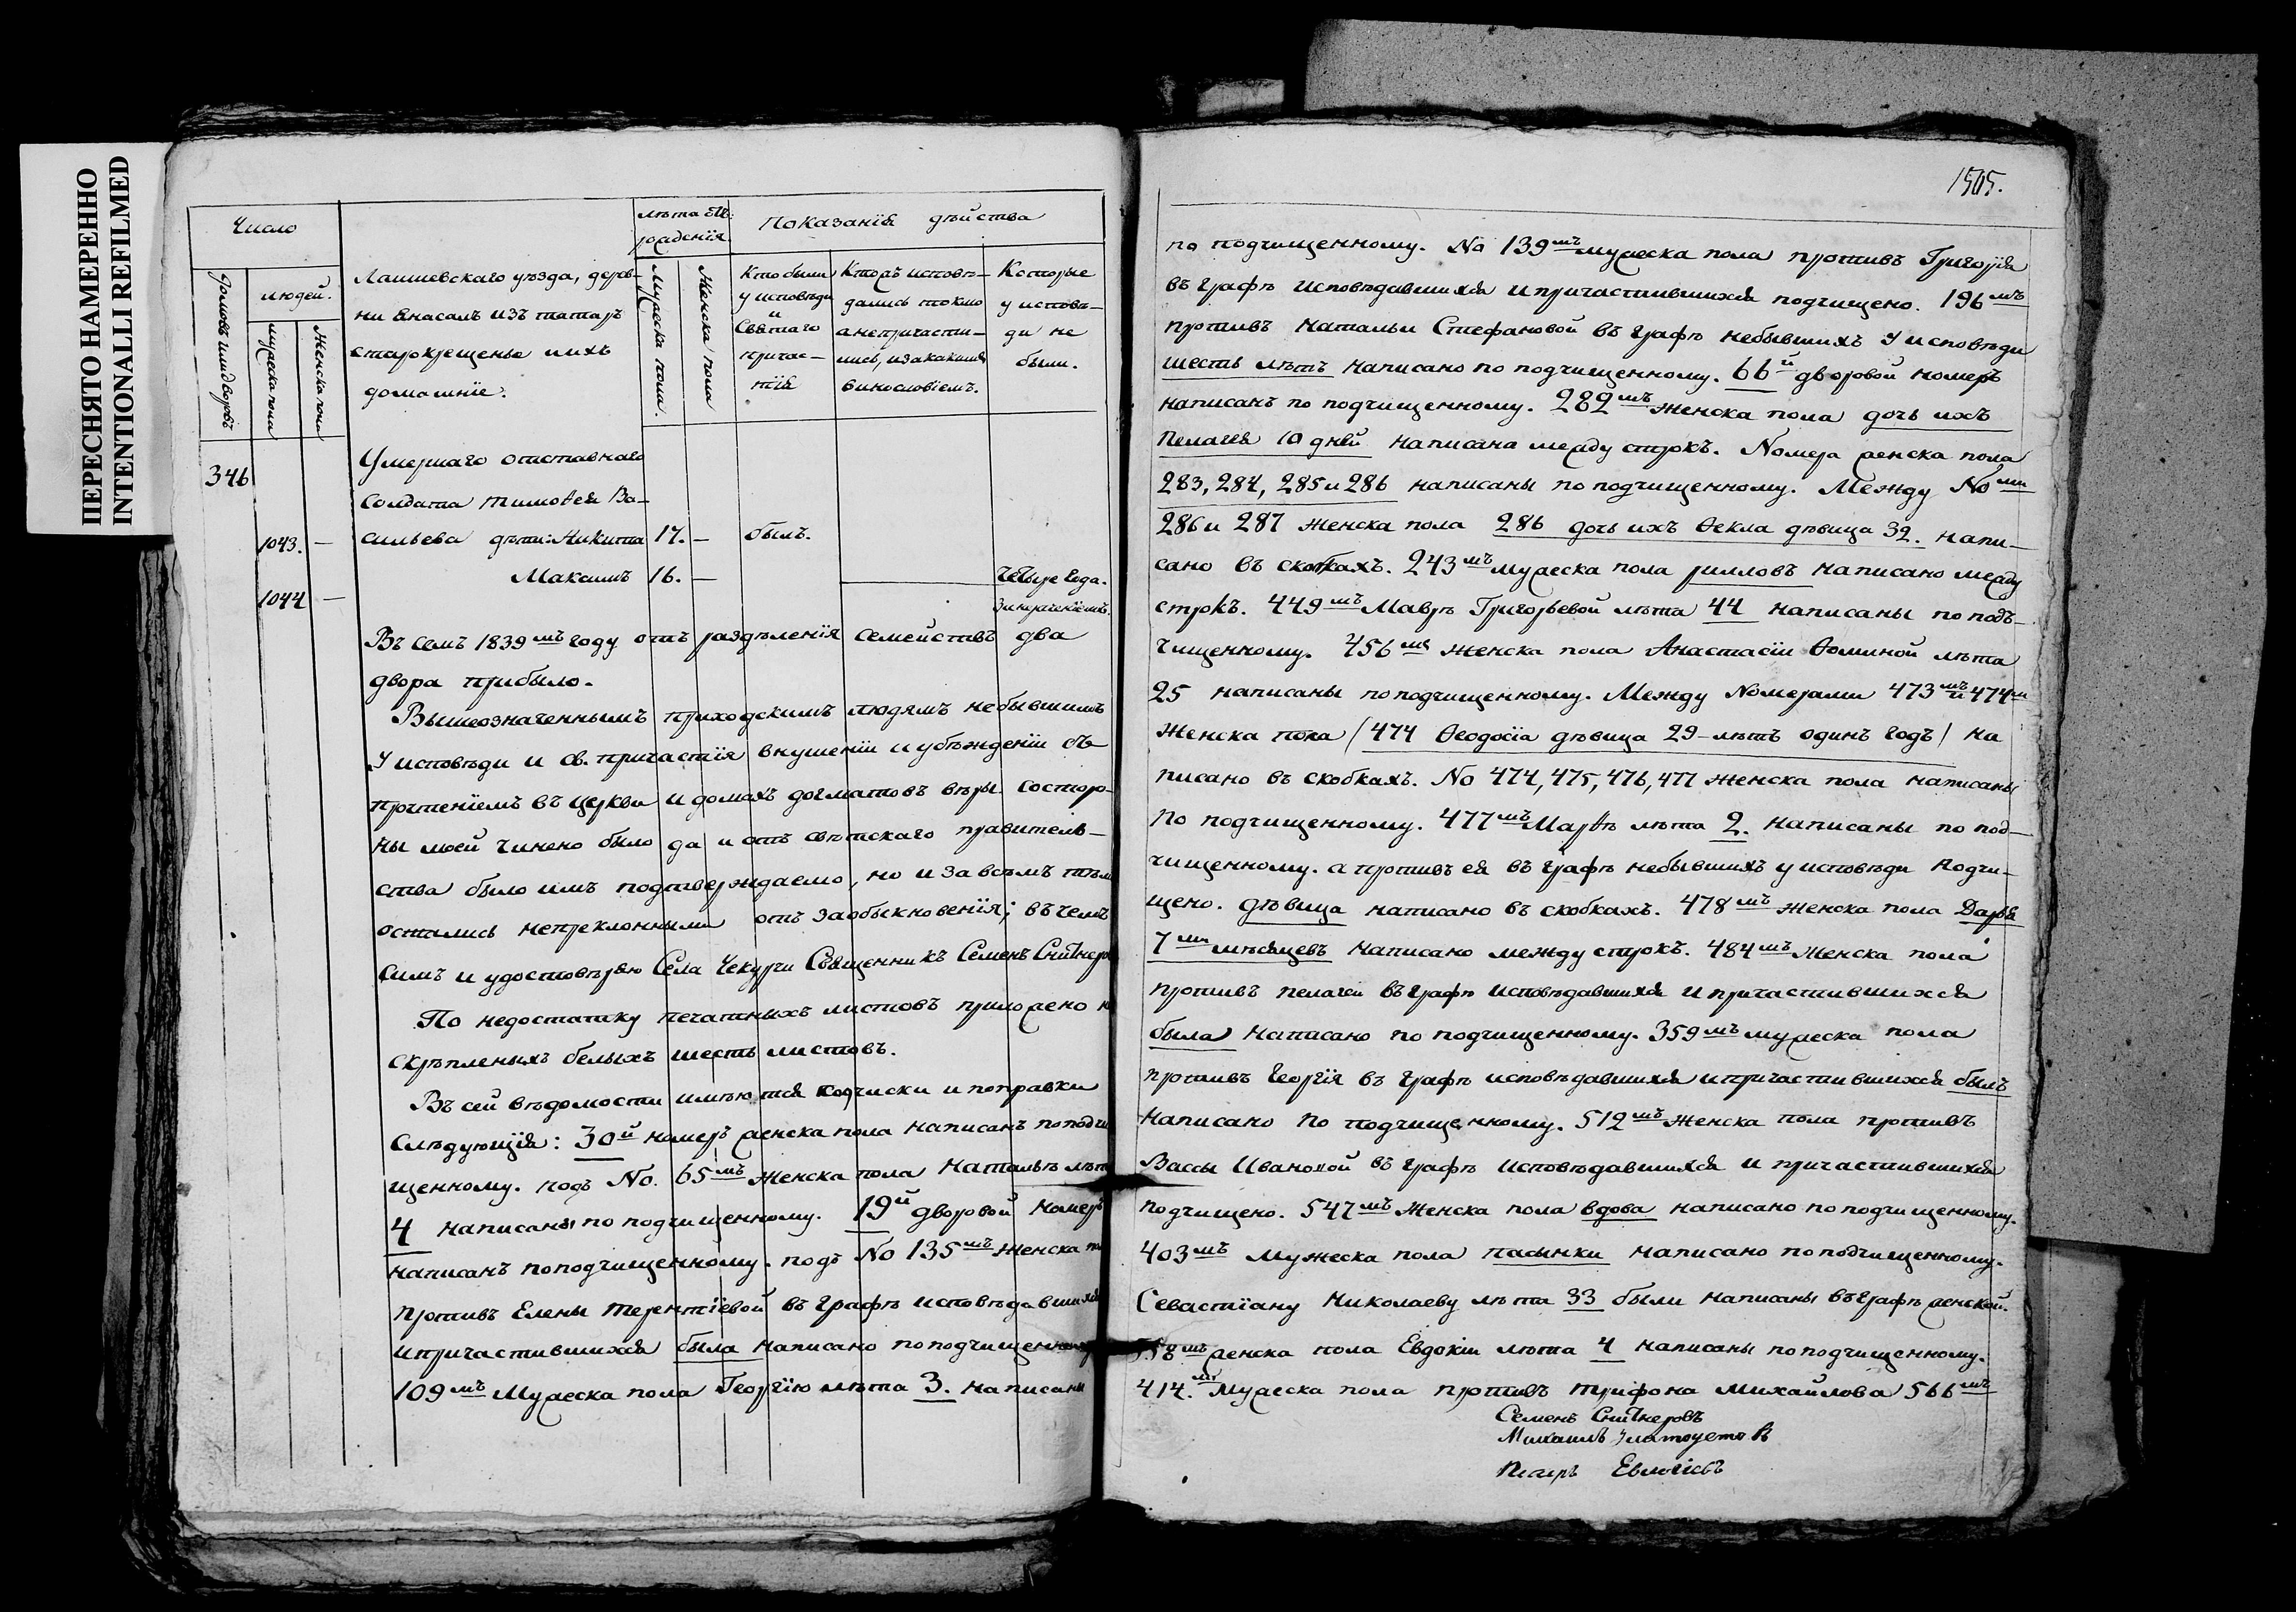 ПЕРЕСНЯТО НАМЕРЕННО
INTENTIONALLI REFILMED
Число
лѣта отъ рожденія.
Показанія дѣйства
домовъ или дворовъ
людей.
мужеска пола
Женска пола
Лаишевскаго уѣзда, дерев-
ни Янасалъ изъ татаръ
старокрещены и ихъ
домашніе.
Мужеска пола.
Женска пола
Кто были
у исповѣди
и
Святаго
причас-
тія
Кто исповѣ-
дались токмо
а не причасти-
лись, и за какимъ
винословіемъ.
Которые
у исповѣ-
ди не
были.
346
Умершаго отставнаго
Солдата Тимоѳея Ва-
1043. — сильева дѣти: Никита 17. — былъ.
1044 — Максимъ 16. — Четыре года.
Въ семъ 1839мъ году отъ раздѣленія семействъ два
двора прибыло.
Вышеозначеннымъ приходскимъ людямъ небывшимъ
У исповѣди и св. причастія внушеніи и убѣжденіи съ
прочтеніемъ въ церкви и домахъ догматовъ вѣры со сторо-
ны моей чинено было да и отъ свѣтскаго правитель-
ства было имъ подтверждаемо, но и за всѣмъ тѣмъ
остались непреклонными отъ заобыкновенія; въ чемъ
симъ и удостовѣряю Села Чекурчи Священникъ Семенъ
По недостатку печатныхъ листовъ приложено не
скрѣпленыхъ белыхъ шесть листовъ.
Въ сей вѣдомости имѣются подчиски и поправки
слѣдующія: 30й номеръ женска пола написанъ по подчи
щенному. подъ No. 65мъ Женска пола Натальѣ лѣта
4 написаны по подчищенному. 19й дворовой номеръ
написанъ по подчищенному. подъ No 135мъ Женска по
противъ Елены Терентіевой въ графѣ исповѣдавшихся
и причастившихся была написано по подчищенному
109мъ Мужеска пола Георгію лѣта 3. написаны
1505.
по подчищенному. No 139мъ мужеска пола противъ Григорія
въ графѣ исповѣдавшихся и причастившихся подчищено. 196мъ
противъ Натальи Стефановой въ графѣ небывшихъ у исповѣди
шесть лѣтъ написано по подчищенному. 66й дворовой номеръ
написанъ по подчищенному. 282мъ Женска пола дочь ихъ
Пелагея 10 дней написана между строкъ. Номера женска пола
283, 284, 285 и 286 написаны по подчищенному. Между Noми
286 и 287 Женска пола 286 дочь ихъ Ѳекла дѣвица 32. напи-
сано въ скобкахъ. 243мъ мужеска пола написано между
строкъ. 449мъ Маврѣ Григорьевой лѣта 44 написаны по под-
чищенному. 456мъ Женска пола Анастасіи Ѳоминой лѣта
25 написаны по подчищенному. Между Номерами 473мъ и 474мъ
Женска пола (474 Ѳеодосіа дѣвица 29-лѣтъ одинъ годъ) на
писано въ скобкахъ. No 474, 475, 476, 477 Женска пола написаны
по подчищенному. 477мъ Марѳѣ лѣта 2. написаны по под-
чищенному. а противъ ея въ графѣ небывшихъ у исповѣди подчи-
щено. дѣвица написано въ скобкахъ. 478мъ Женска пола Дарья
7ми мѣсяцевъ написано между строкъ. 484мъ Женска пола
противъ Пелагеи въ графѣ исповѣдавшихся и причастившихся
была написано по подчищенному. 359мъ мужеска пола
противъ Георгія въ графѣ исповѣдавшихся и причастившихся былъ
написано по подчищенному. 512мъ Женска пола противъ
Вассы Ивановой въ графѣ исповѣдавшихся и причастившихся
подчищено. 547мъ Женска пола вдова написано по подчищенному.
403мъ Мужеска пола пасынки написано по подчищенному.
Севастіану Николаеву лѣта 33 были написаны въ графѣ женской.
558мъ женска пола Евдокіи лѣта 4 написаны по подчищенному.
414.мъ Мужеска пола противъ Трифона Михайлова 566мъ
Семенъ
Михаилъ
Петръ Евлогіевъ